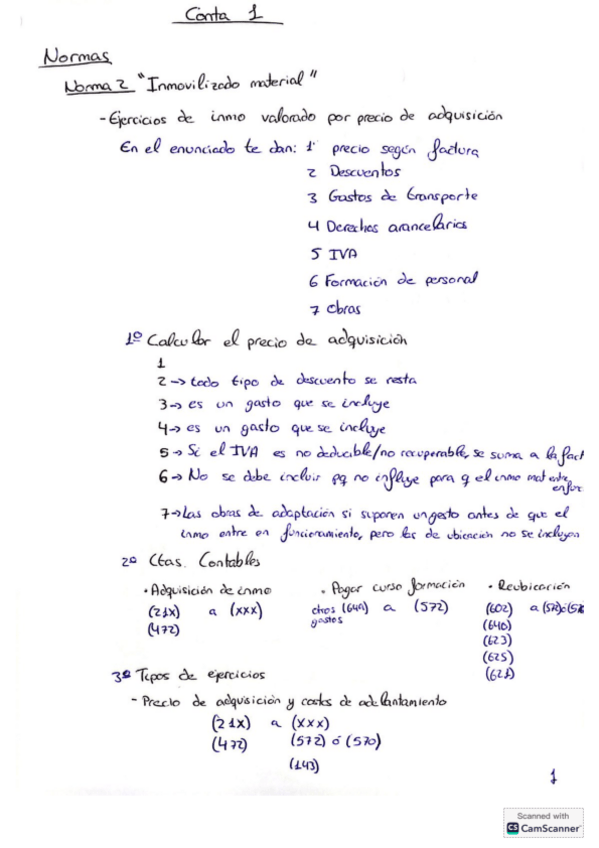 Conta 1
Normas
Norma 2 "Inmovilizado material"
- Ejercicios de inmo valorado por precio de adquisición
En el enunciado te dan: 1 precio según factura
2 Descuentos
3 Gastos de transporte
4 Derechos arancelarios
5 IVA
6 Formación de personal
7 Obras
1º Calcular el precio de adquisición
1
2 → todo tipo de descuento se resta
3 → es un gasto que se incluye
4 → es un gasto que se incluye
5 → Si el IVA es no deducible/no recuperable, se suma a la fact
6 → No se debe incluir pq no influye para q el inmo mat entre
en fun
7 → Las obras de adaptación si suponen un gasto antes de que el
inmo entre en funcionamiento, pero las de ubicación no se incluyen
2º Ctas. Contables
• Adquisición de inmo • Pagar curso formación • Reubicación
(21x) a (xxx) otros (649) a (572) (602) a (572)ó(57
(472) gastos (640)
(623)
(625)
(621)
3º Tipos de ejercicios
- Precio de adquisición y costes de
(21x) a (xxx)
(472) (572) ó (570)
(143)
1
Scanned with
CS CamScanner